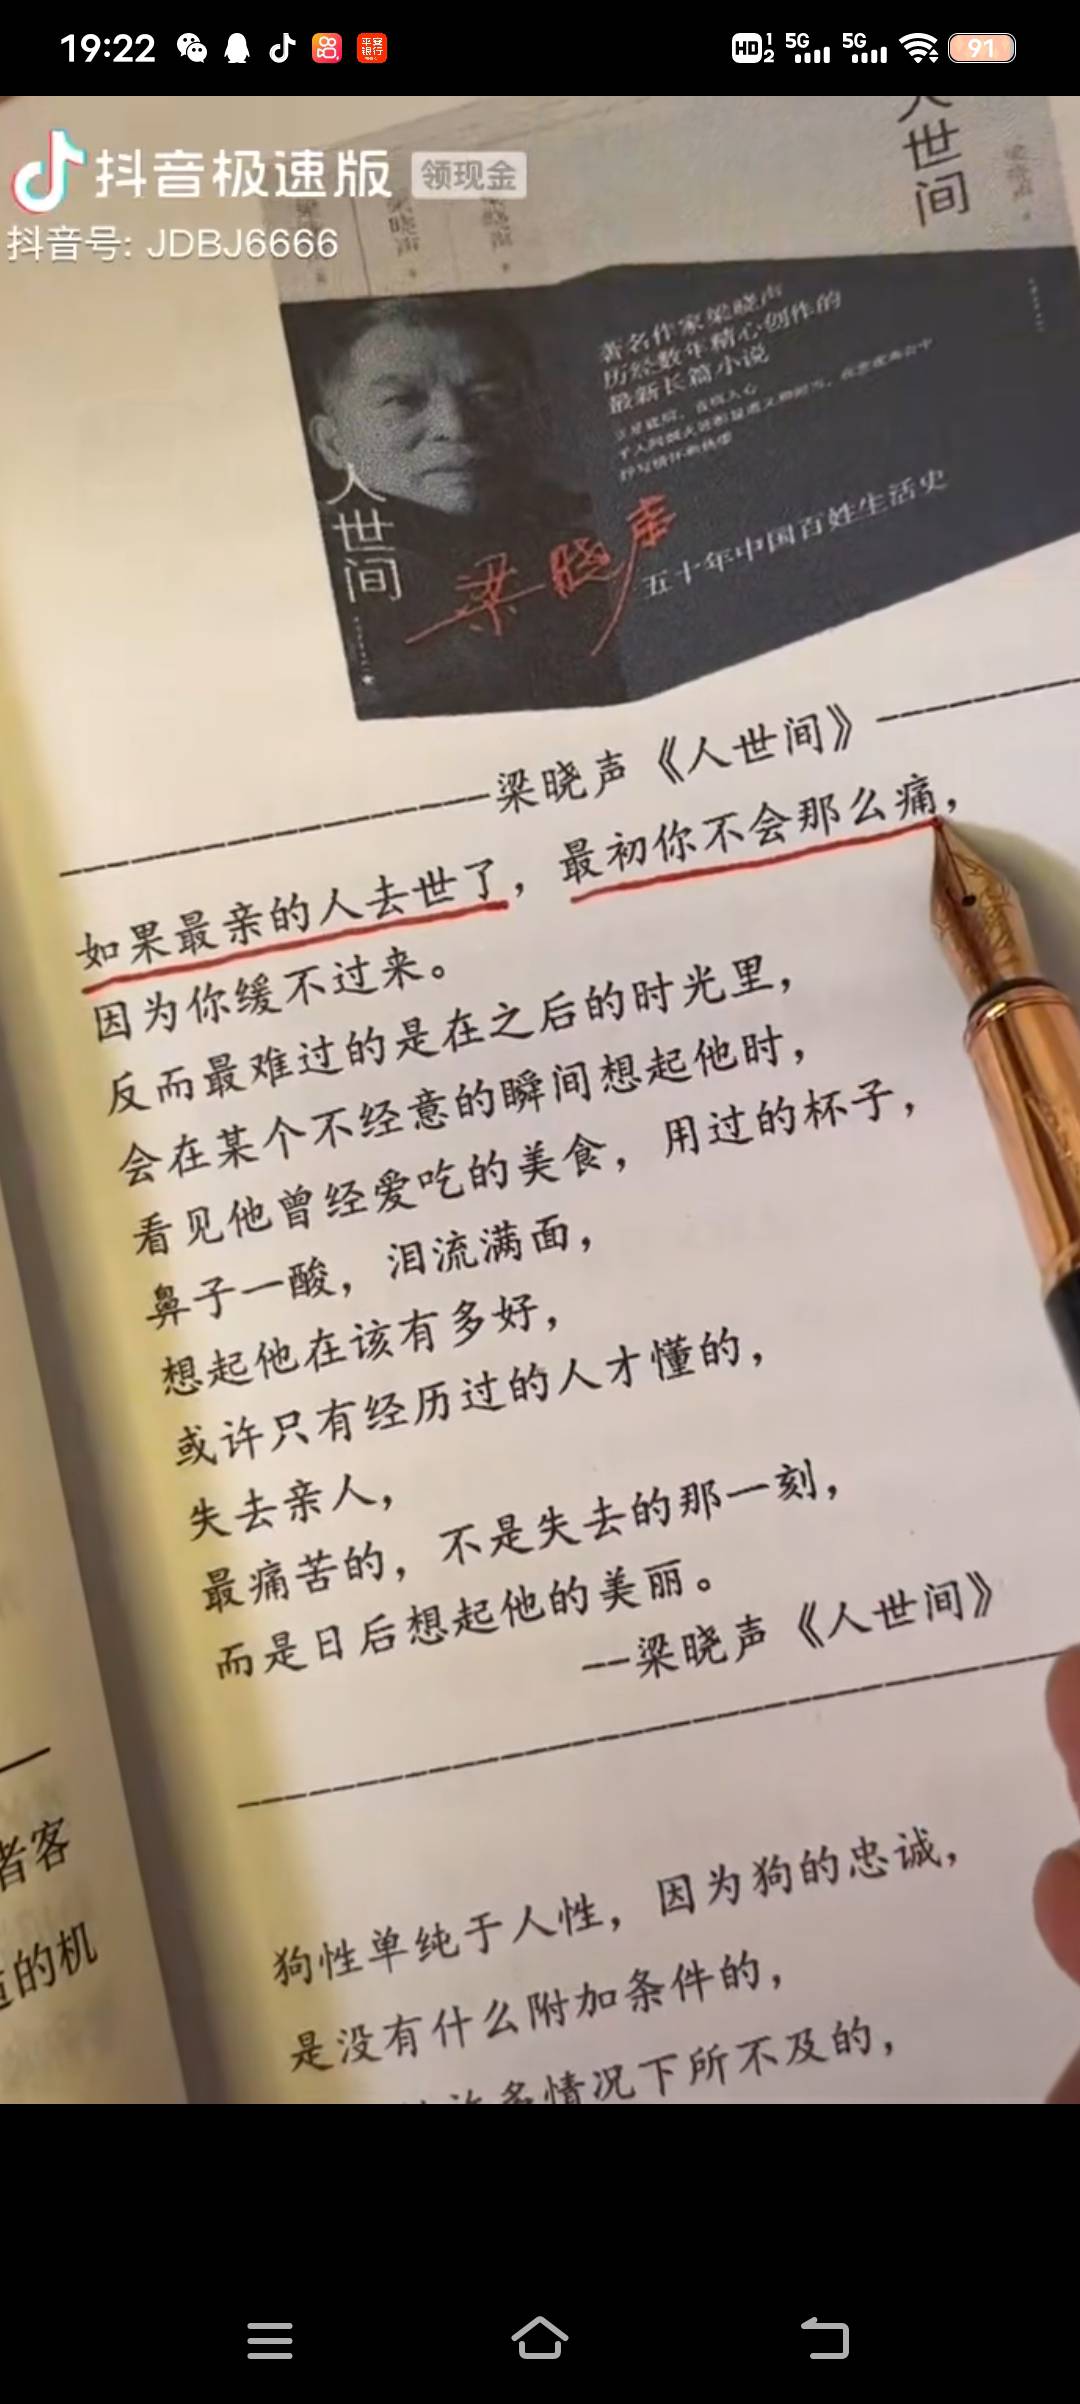 19:22
HD 1 2 5G 5G 91
抖音极速版 领现金
抖音号: JDBJ6666
人世间
著名作家梁晓声
历经数年精心创作的
最新长篇小说
五十年中国百姓生活史
人世间
梁晓声
梁晓声《人世间》
如果最亲的人去世了，最初你不会那么痛，
因为你缓不过来。
反而最难过的是在之后的时光里，
会在某个不经意的瞬间想起他时，
看见他曾经爱吃的美食，用过的杯子，
鼻子一酸，泪流满面，
想起他在该有多好，
或许只有经历过的人才懂的，
失去亲人，
最痛苦的，不是失去的那一刻，
而是日后想起他的美丽。
--梁晓声《人世间》
狗性单纯于人性，因为狗的忠诚，
是没有什么附加条件的，
许多情况下所不及的，
者客
的机